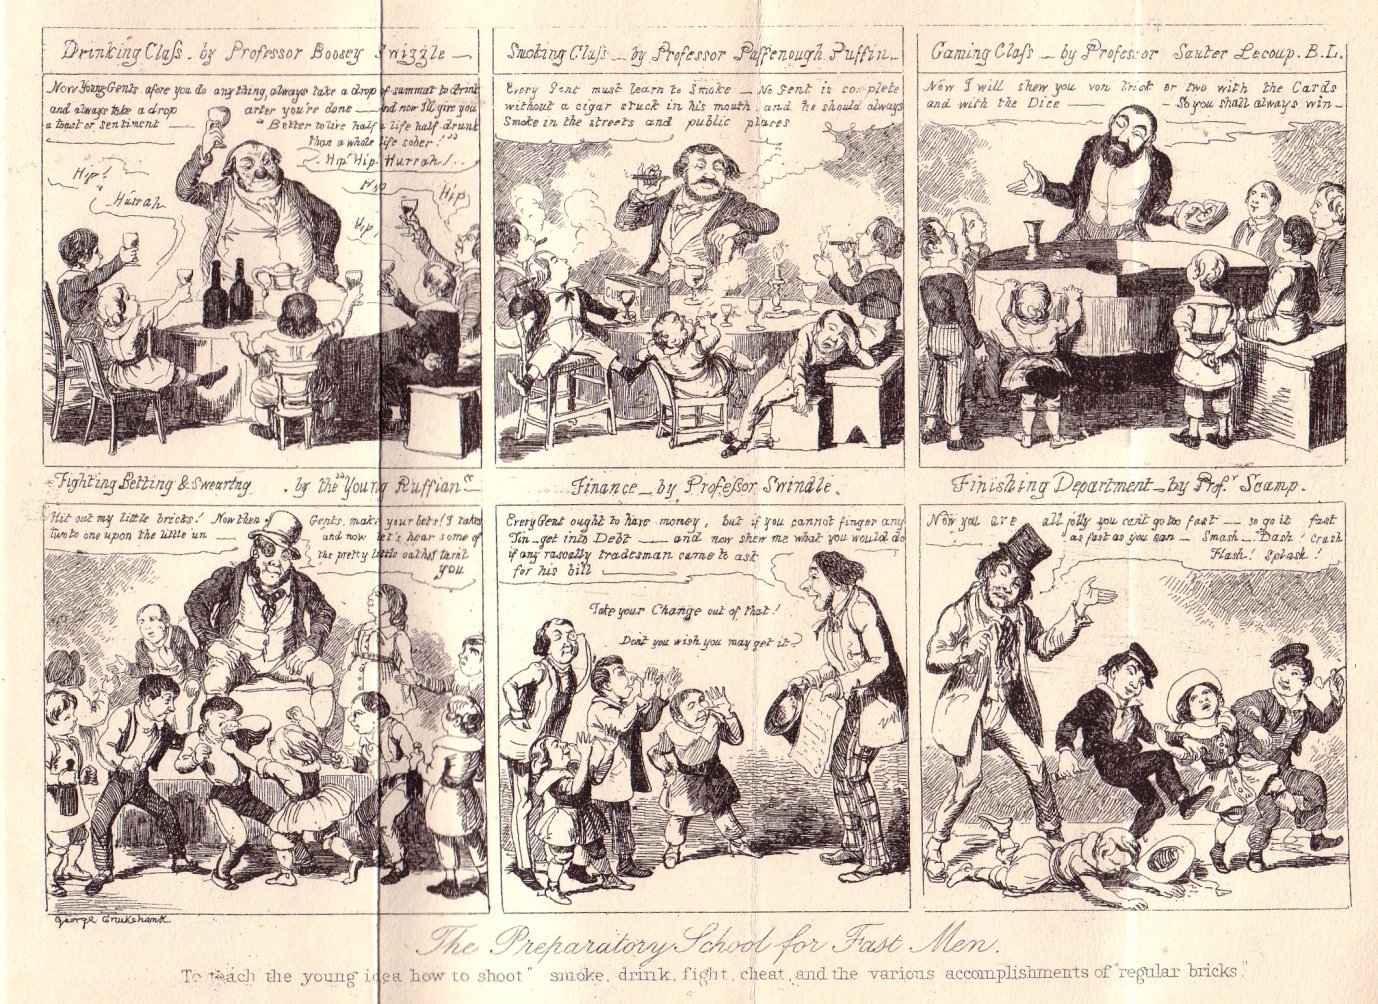 Drinking Claſs - by Professor Boosey Swizzle —
Now Young Gents, afore you do any thing, always take a drop of summat to drink
and always take a drop arter you're done — and now I'll give you
a toast or sentiment — "Better to live half a life half drunk
than a whole life sober!"
Hip! Hip! Hurrah!..
Hip!
Hurrah
Hip
Hip
Hip!
Smoking Claſs — by Professor Puffenough Puffin —
Every Gent must learn to Smoke — No Gent is complete
without a cigar stuck in his mouth, and he should always
Smoke in the streets and public places
CUBA
Gaming Claſs — by Professor Sauter Lecoup. B.L.
Now I will shew you von Trick or two with the Cards
and with the Dice — — So you shall always win —
Fighting Betting & Swearing. by the "Young Ruffian" —
Hit out my little bricks! Now then Gents, make your bets! I takes
two to one upon the little un — and now let's hear some of
the pretty little oaths I larnt
you
Finance — by Profeſsor Swindle.
Every Gent ought to have money, but if you cannot finger any
Tin — get into Debt — and now shew me what you would do
if any rascally tradesman came to ask
for his bill —
Take your Change out of that!
Don't you wish you may get it?
Finishing Department — by Prof.r Scamp.
Now you are all jolly you can't go too fast — so go it fast
as fast as you can — Smash — Dash! Crash
Flash! Splash!
George Cruikshank
The Preparatory School for Fast Men.
To teach the young idea how to shoot" smoke, drink, fight, cheat, and the various accomplishments of "regular bricks."